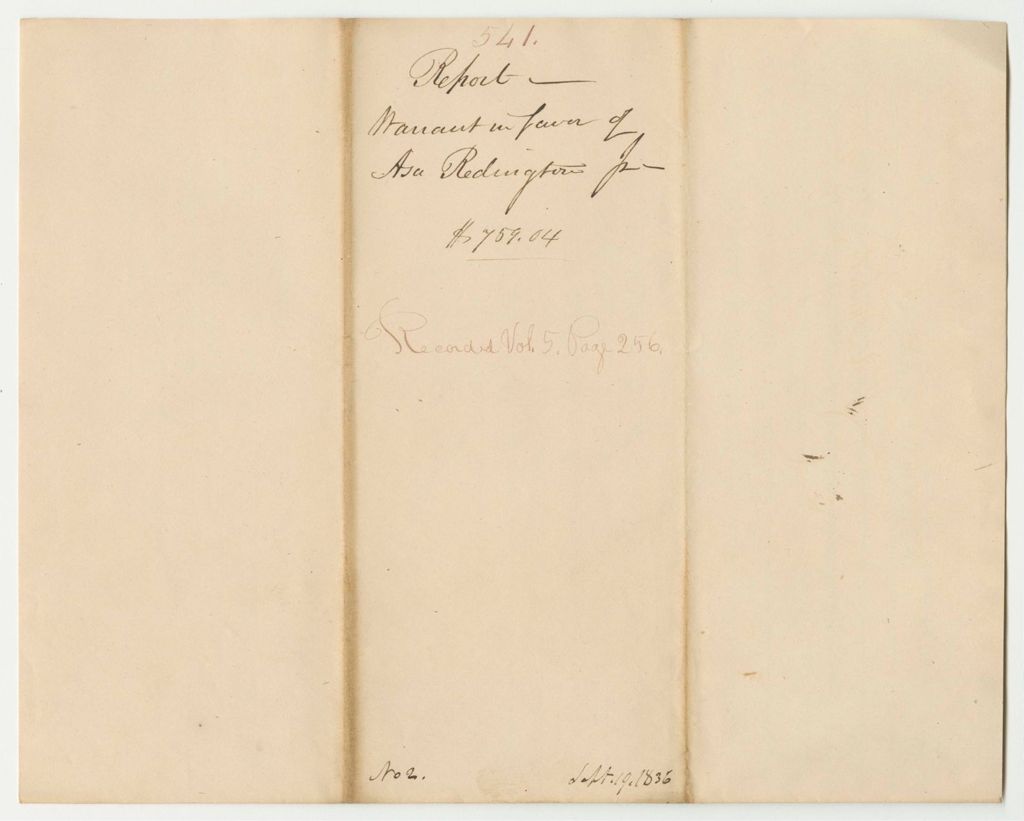 541.
Report —
Warrant in favor of
Asa Redington Jr —
$759.04
Recorded Vol. 5. Page 256.
No 2.
Sept. 19. 1836